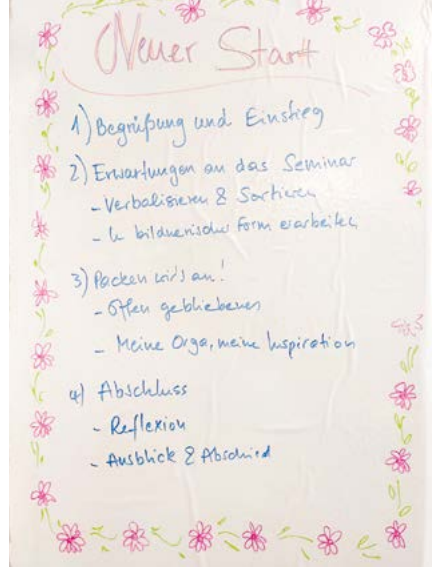 Neuer Start
1) Begrüßung und Einstieg
2) Erwartungen an das Seminar
- Verbalisieren & Sortieren
- In bildnerischer Form erarbeiten
3) Packen wir's an!
- Offen gebliebenes
- Meine Orga, meine Inspiration
4) Abschluss
- Reflexion
- Ausblick & Abschied